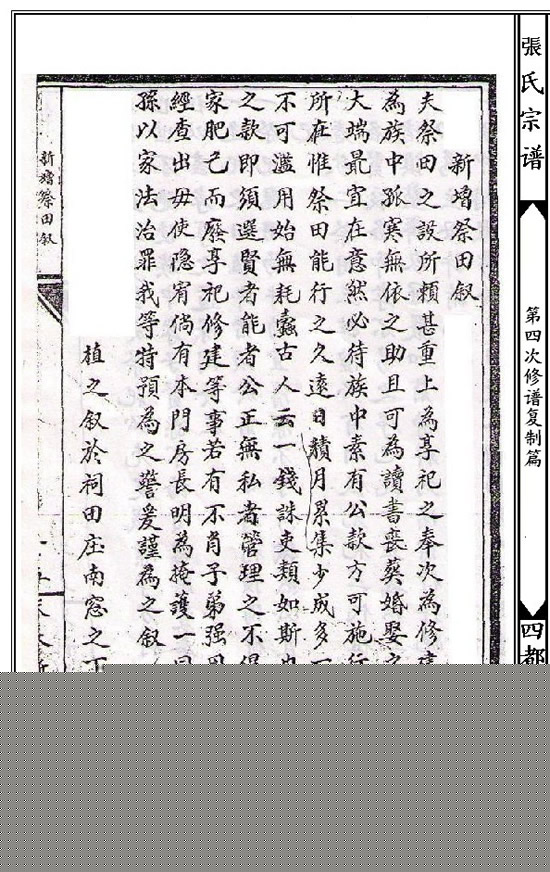 張氏宗谱
第四次修谱复制篇
四都
新增祭田叙
夫祭田之設所賴甚重上為享祀之奉次為修建
為族中孤寒無依之助且可為讀書喪葬婚娶之
大端最宜在意然必待族中素有公款方可施行
所在惟祭田能行之久遠日積月累集少成多一
不可濫用始無耗蠹古人云一錢誅吏類如斯也
之款即須選賢者能者公正無私者管理之不得
家肥己而廢享祀修建等事若有不肖子弟强
經查出毋使隐宥倘有本門房長明為掩護一同
孫以家法治罪我等特預為之警爰謹為之叙
植之叙於祠田庄南窓之下
新增祭田叙